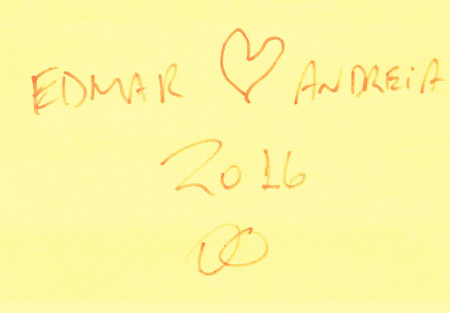 EDMAR ♡ ANDREiA
2016